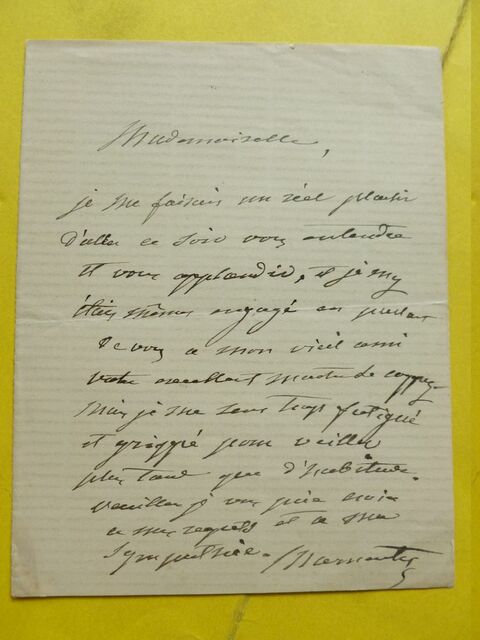 Mademoiselle,
je me faisais un réel plaisir
d'aller ce soir vous entendre
et vous applaudir, et je m'y
étais même engagé en parlant
de vous a mon vieil ami
votre excellent maitre de
mais je me sens trop fatigué
et grippé pour veiller
plus tard que d'habitude.
veuillez je vous prie croire
a mes regrets et a ma
sympathie. Marmontel